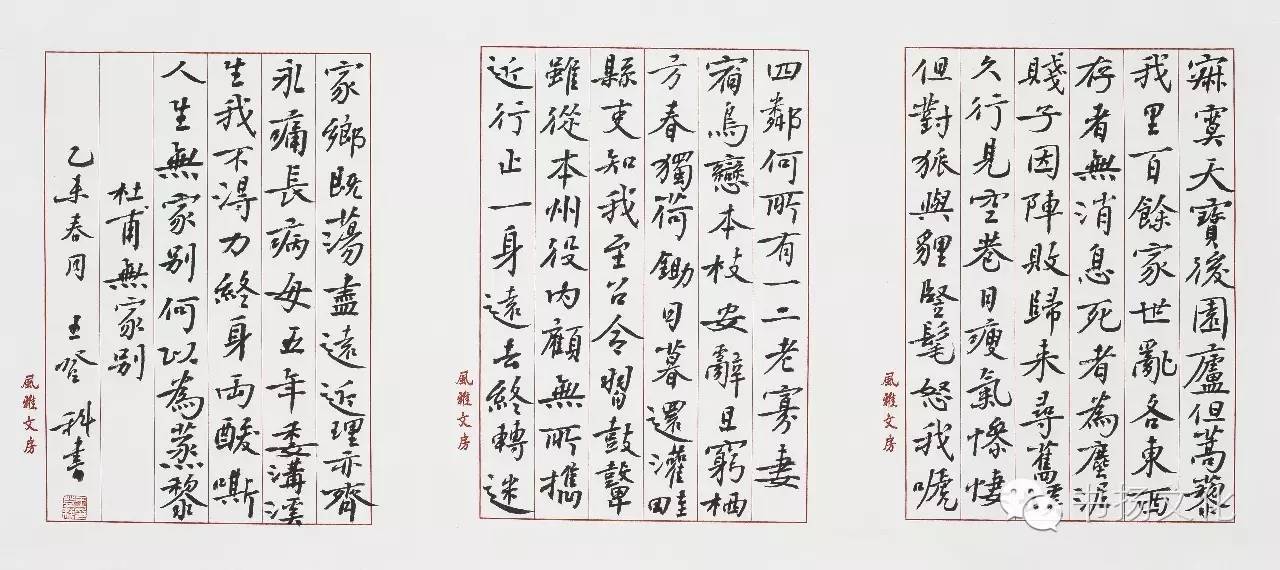 寂寞天寶後園廬但蒿藜
我里百餘家世亂各東西
存者無消息死者為塵泥
賤子因陣敗歸来尋舊蹊
久行見空巷日瘦氣惨悽
但對狐與貍豎髦怒我嗁
風雅文房
四鄰何所有一二老寡妻
宿鳥戀本枝安辭且窮栖
方春獨荷鋤日暮還灌畦
縣吏知我至召令習鼓鼙
雖從本州役内顧無所攜
近行止一身遠去終轉迷
風雅文房
家鄉既蕩盡遠近理亦齊
永痛長病母五年委溝溪
生我不得力終身兩酸嘶
人生無家别何以為蒸黎
杜甫無家别
乙未春月 王登科書
風雅文房
书扬文化